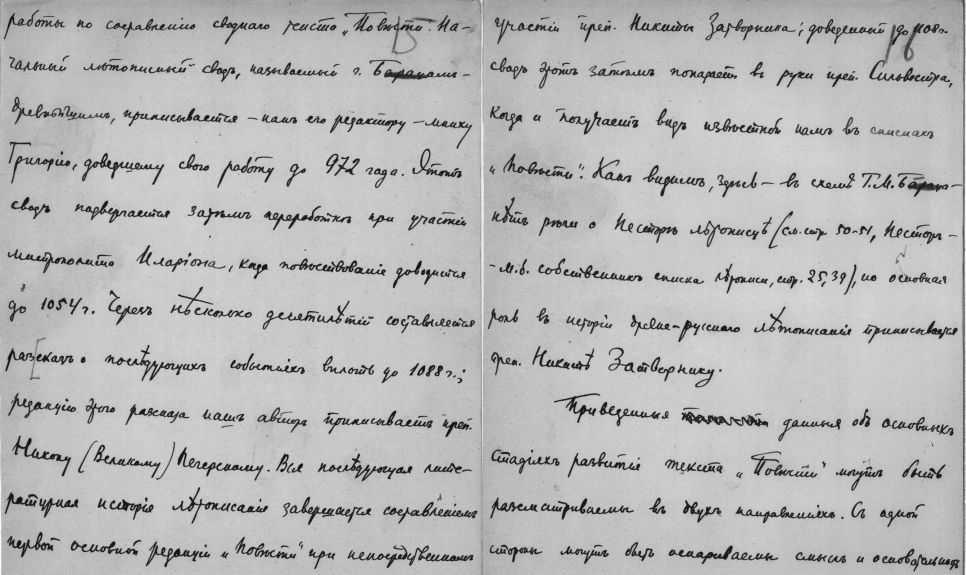 работы по составленію своднаго текста „Повѣсти". На-
чальный лѣтописный сводъ, называемый г. Баранамъ-
древнѣйшимъ, приписывается – намъ его редактору – мниху
Григорію, доведшему свою работу до 972 года. Этотъ
сводъ подвергается затѣмъ переработкѣ при участіи
митрополита Иларіона, когда повѣствованіе доводится
до 1054 г. Черезъ нѣсколько десятилѣтій составляется
разсказъ о послѣдующихъ событіяхъ вплоть до 1088 г.;
редакцію этого разсказа нашъ авторъ приписываетъ преп.
Никону (Великому) Печерскому. Вся послѣдующая лите-
ратурная исторія лѣтописанія завершается составленіемъ
первой основной редакціи „Повѣсти" при непосредственномъ
участіи преп. Никиты Затворника; доведенный до 1108 г.
сводъ этотъ затѣмъ попадаетъ въ руки преп. Сильвестра,
когда и получаетъ видъ извѣстной намъ въ спискахъ
„Повѣсти". Какъ видимъ, здѣсь – въ схемѣ Г. М. Баранка-
нѣтъ рѣчи о Несторѣ лѣтописцѣ (см. стр. 50-51, Несторъ –
– м. б. собственникъ списка лѣтописи, стр. 25, 39), но основная
роль въ исторіи древне-русскаго лѣтописанія приписывается
преп. Никитѣ Затворнику.
Приведенныя данныя объ основныхъ
стадіяхъ развитія текста „Повѣсти" могутъ быть
разсматриваемы въ двухъ направленіяхъ. Съ одной
стороны могутъ быть оспариваемы смыслъ и основательность